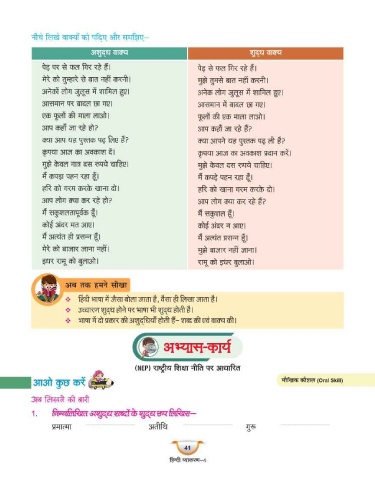 नीचे लिखे वाक्यों को पढ़िए और समझिए–
अशुद्ध वाक्य शुद्ध वाक्य
पेड़ पर से फल गिर रहे हैं। पेड़ से फल गिर रहे हैं।
मेरे को तुम्हारे से बात नहीं करनी। मुझे तुमसे बात नहीं करनी।
अनेकों लोग जुलूस में शामिल हुए। अनेक लोग जुलूस में शामिल हुए।
आसमान पर बादल छा गए। आसमान में बादल छा गए।
एक फूलों की माला लाओ। फूलों की एक माला लाओ।
आप कहाँ जा रहे हो? आप कहाँ जा रहे हैं?
क्या आप यह पुस्तक पढ़ लिए हैं? क्या आपने यह पुस्तक पढ़ ली है?
कृपया आज का अवकाश दें। कृप्या आज का अवकाश प्रदान करें।
मुझे केवल मात्र दस रुपये चाहिए। मुझे केवल दस रुपये चाहिए।
मैं कपड़ा पहन रहा हूँ। मैं कपड़े पहन रहा हूँ।
हरि को गरम करके खाना दो। हरि को खाना गरम करके दो।
आप लोग क्या कर रहे हो? आप लोग क्या कर रहे हैं?
मैं सकुशलतापूर्वक हूँ। मैं सकुशल हूँ।
कोई अंदर मत आए। कोई अंदर न आए।
मैं अत्यंत ही प्रसन्न हूँ। मैं अत्यंत प्रसन्न हूँ।
मेरे को बाजार जाना नहीं। मुझे बाजार नहीं जाना।
इधर रामू को बुलाओ। रामू को इधर बुलाओ।
अब तक हमने सीखा
हिंदी भाषा में जैसा बोला जाता है, वैसा ही लिखा जाता है।
उच्चारण शुद्ध होने पर भाषा भी शुद्ध होती है।
भाषा में दो प्रकार की अशुद्धियाँ होती हैं– शब्द की एवं वाक्य की।
अभ्यास-कार्य
(NEP) राष्ट्रीय शिक्षा नीति पर आधारित
आओ कुछ करें मौखिक कौशल (Oral Skill)
अब लिखने की बारी
1. निम्नलिखित अशुद्ध शब्दों के शुद्ध रूप लिखिए–
प्रमात्मा अतीथि गुरू
41
हिन्दी व्याकरण-4